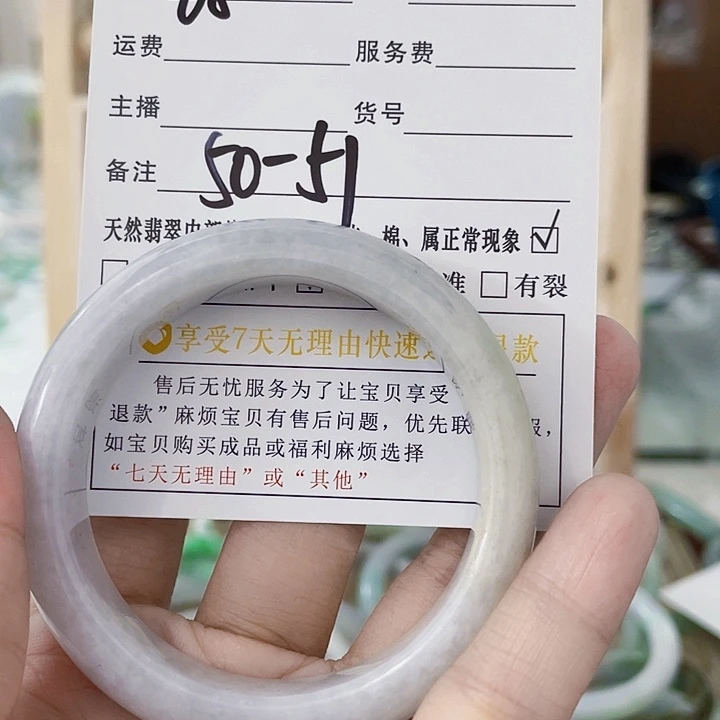 运费 服务费
主播 货号
备注 50-51
天然翡翠 棉、属正常现象
准 有裂
享受7天无理由快速 款
售后无忧服务为了让宝贝享受
退款”麻烦宝贝有售后问题，优先联 服，
如宝贝购买成品或福利麻烦选择
“七天无理由”或“其他”